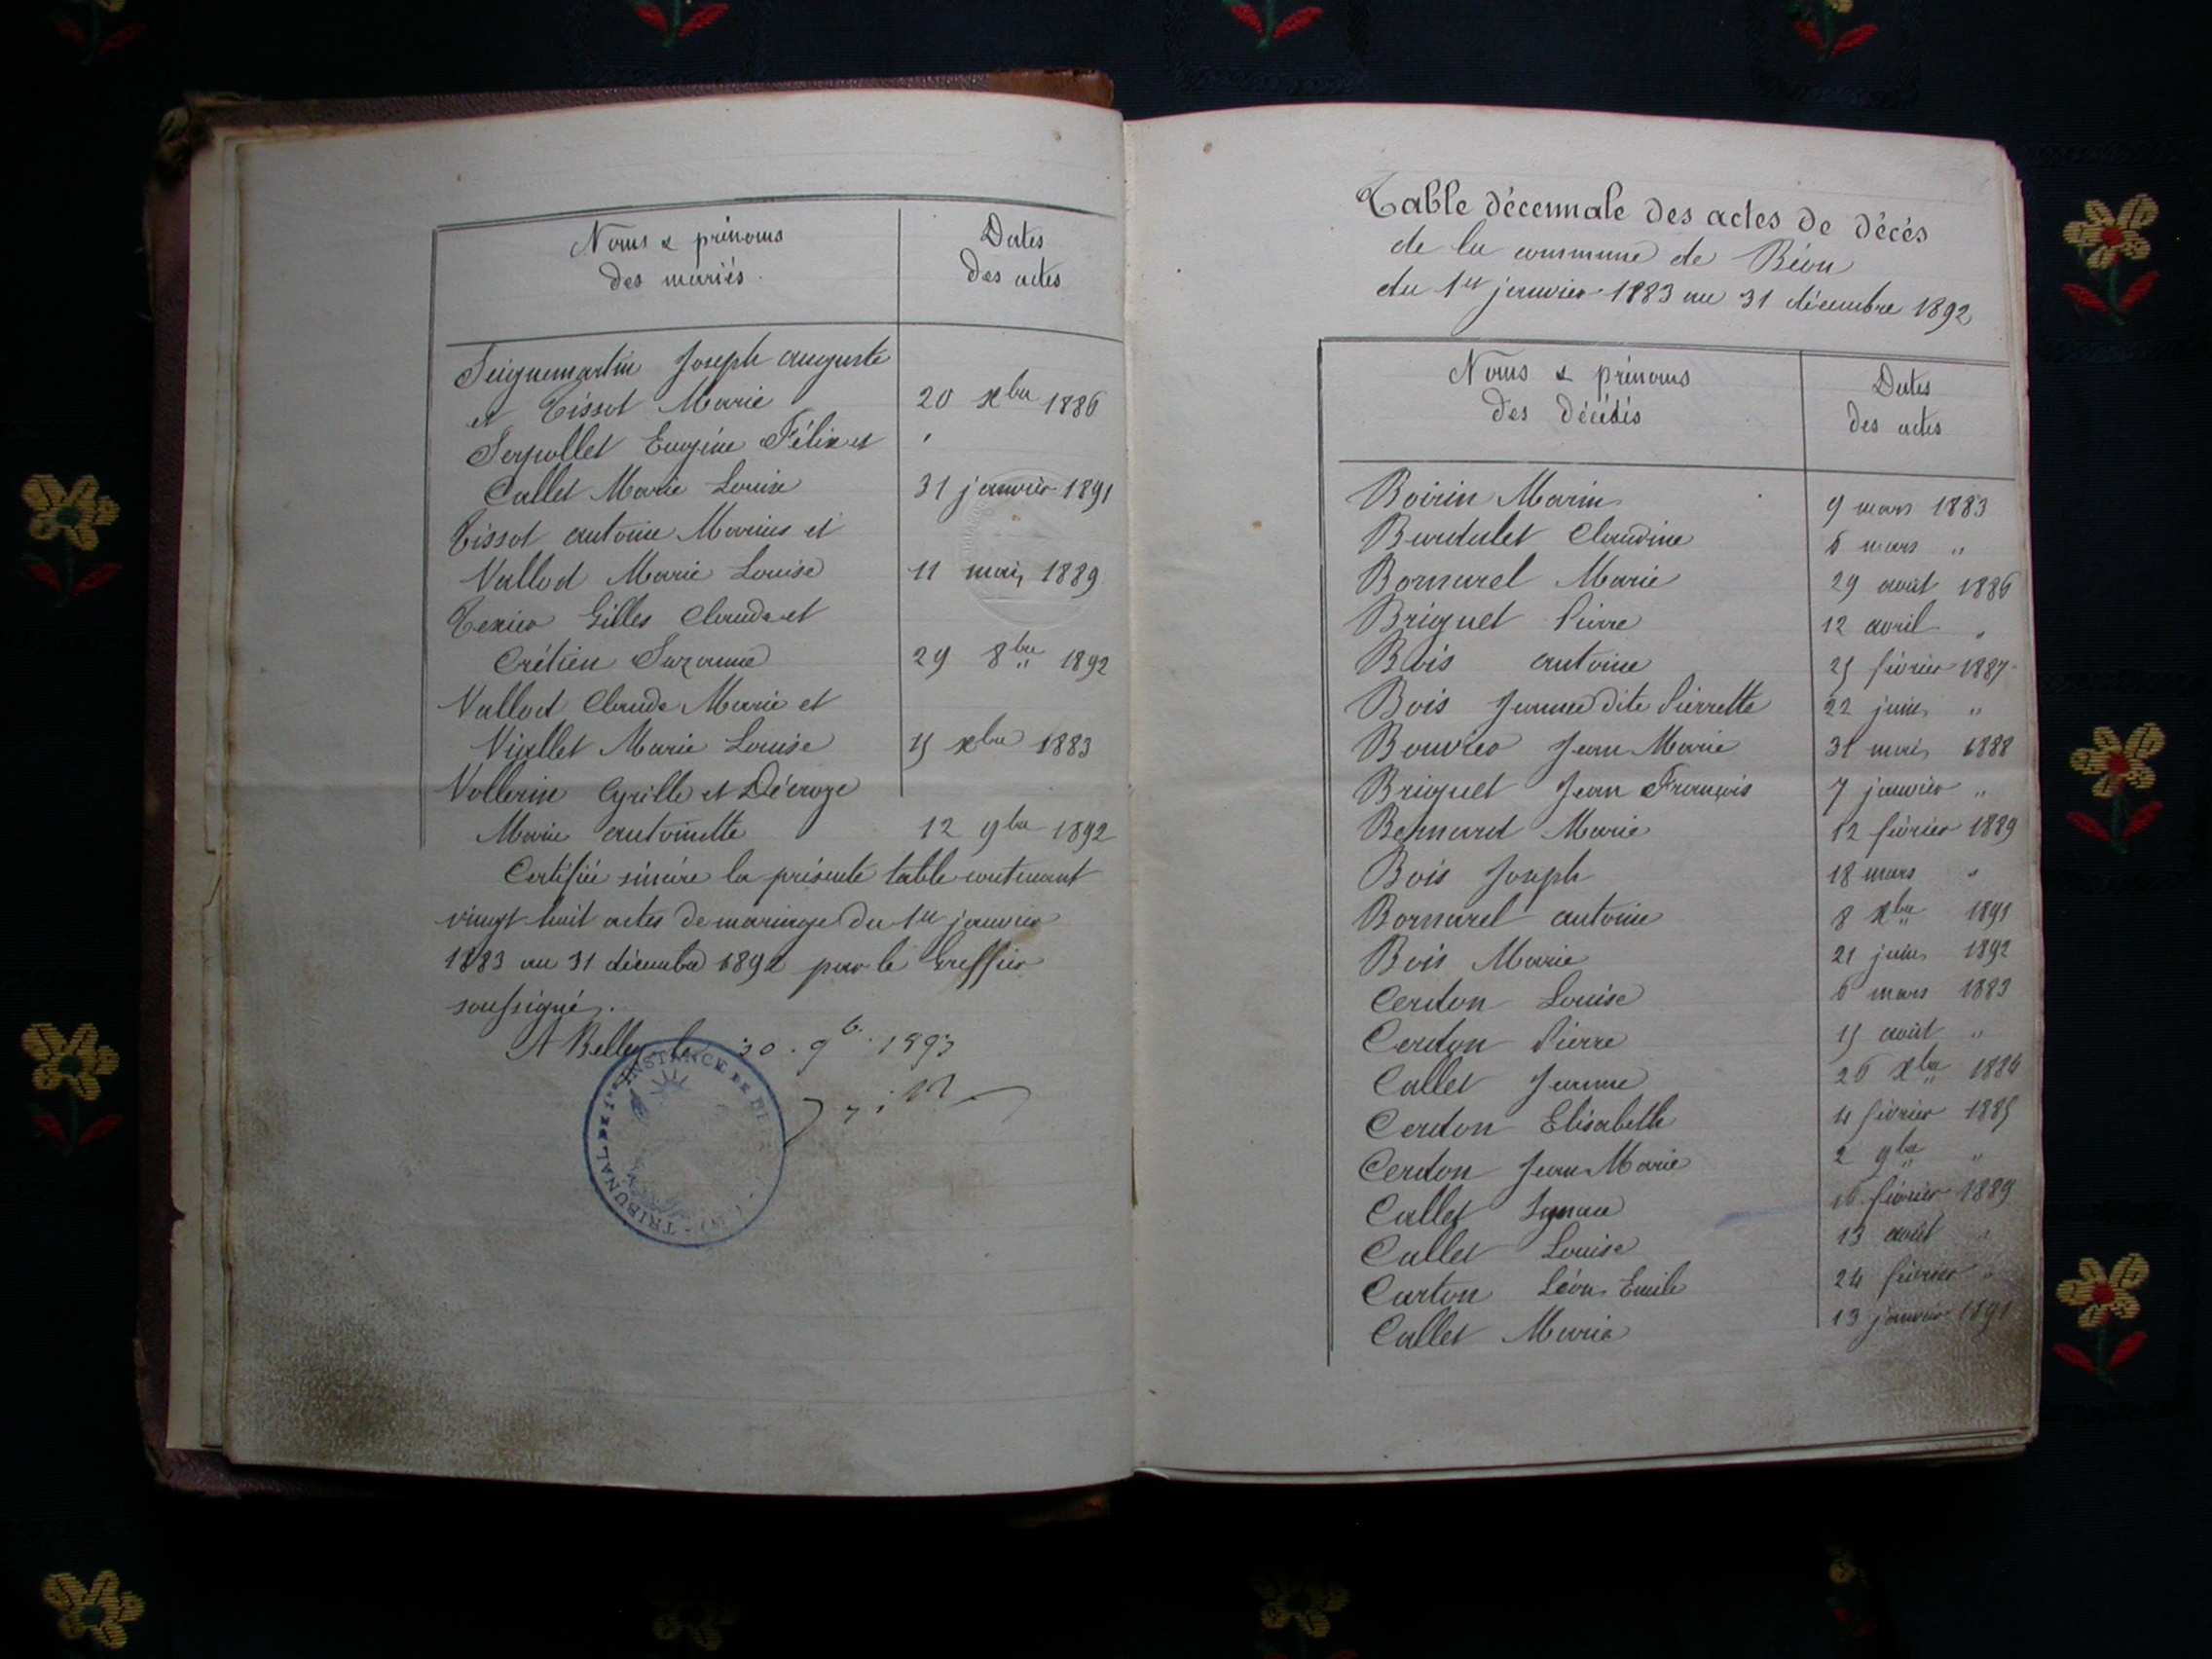 Noms & prénoms
des mariés.
Dates
des actes
Seignemartin Joseph auguste
et Tissot Marie 20 xbre 1886
Serpollet Eugène Félix et
Callet Marie Louise 31 janvier 1891
Tissot antoine Marius et
Vallod Marie Louise 11 mai 1889
Tenier Gilles Claude et
Crétien Suzanne 29 8bre 1892
Vallod Claude Marie et
Viallet Marie Louise 15 xbre 1883
Vollerin Cyrille et Décroze
Marie antoinette 12 9bre 1892
Certifiée sincère la présente table contenant
vingt huit actes de mariage du 1er janvier
1883 au 31 décembre 1892 par le Greffier
soussigné.
A Belley le 30. 9b. 1893
TRIBUNAL DE 1ère INSTANCE DE
Table décennale des actes de décès
de la commune de Béon
du 1er janvier 1883 au 31 décembre 1892
Noms & prénoms
des décédés
Dates
des actes
Boirin Marin 9 mars 1883
Burdulet Claudine 6 mars "
Bornarel Marie 29 août 1886
Briquet Pierre 12 avril "
Bois antoine 25 février 1887
Bois Jeanne dite Pierrette 22 juin "
Bouvier Jean Marie 31 mai 1888
Briquet Jean François 7 janvier "
Bernard Marie 12 février 1889
Bois Joseph 18 mars "
Bornarel antoine 8 xbre 1891
Bois Marie 21 juin 1892
Cerdon Louise 6 mars 1883
Cerdon Pierre 15 août "
Callet Jeanne 26 xbre 1884
Cerdon Elisabeth 4 février 1885
Cerdon Jean Marie 2 9bre "
Callet février 1889
Callet Louise 13 août "
Carton Léon Emile 24 février "
Callet Maria 13 janvier 1891